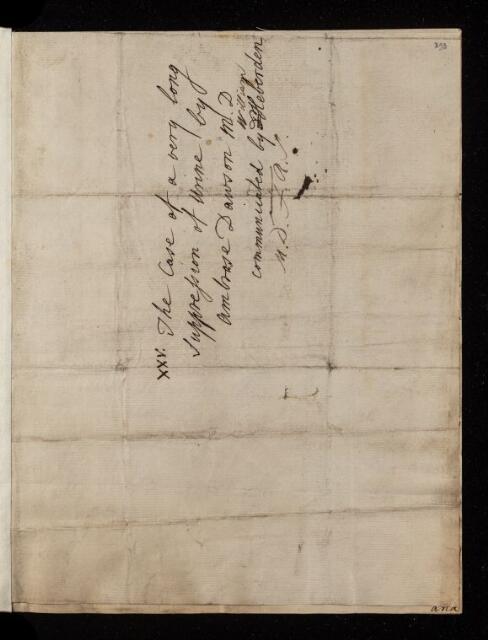 XXV. The Case of a very long
suppression of Urine by
Ambrose Dawson M.D
William
communicated by Heberden
M.D.
ana